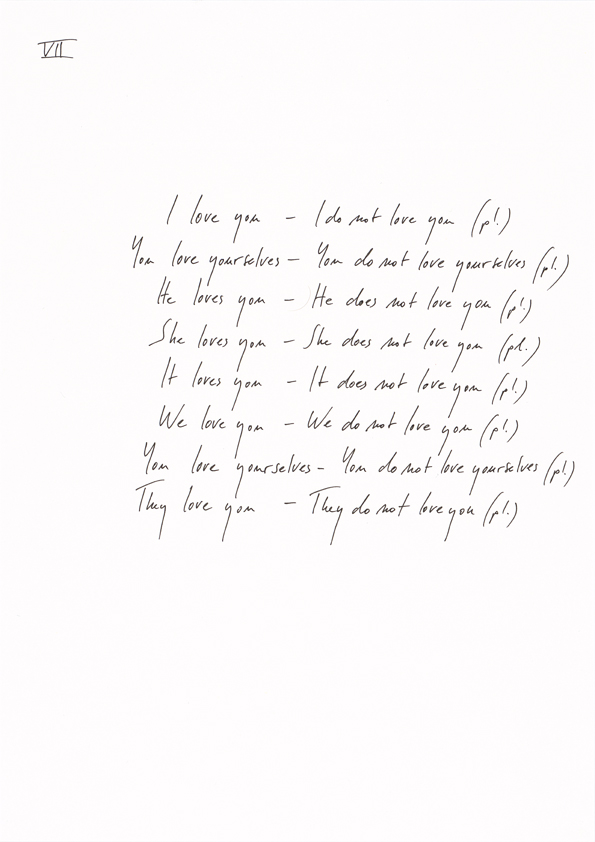 VII
I love you – I do not love you (pl.)
You love yourselves – You do not love yourselves (pl.)
He loves you – He does not love you (pl.)
She loves you – She does not love you (pl.)
It loves you – It does not love you (pl.)
We love you – We do not love you (pl.)
You love yourselves – You do not love yourselves (pl.)
They love you – They do not love you (pl.)